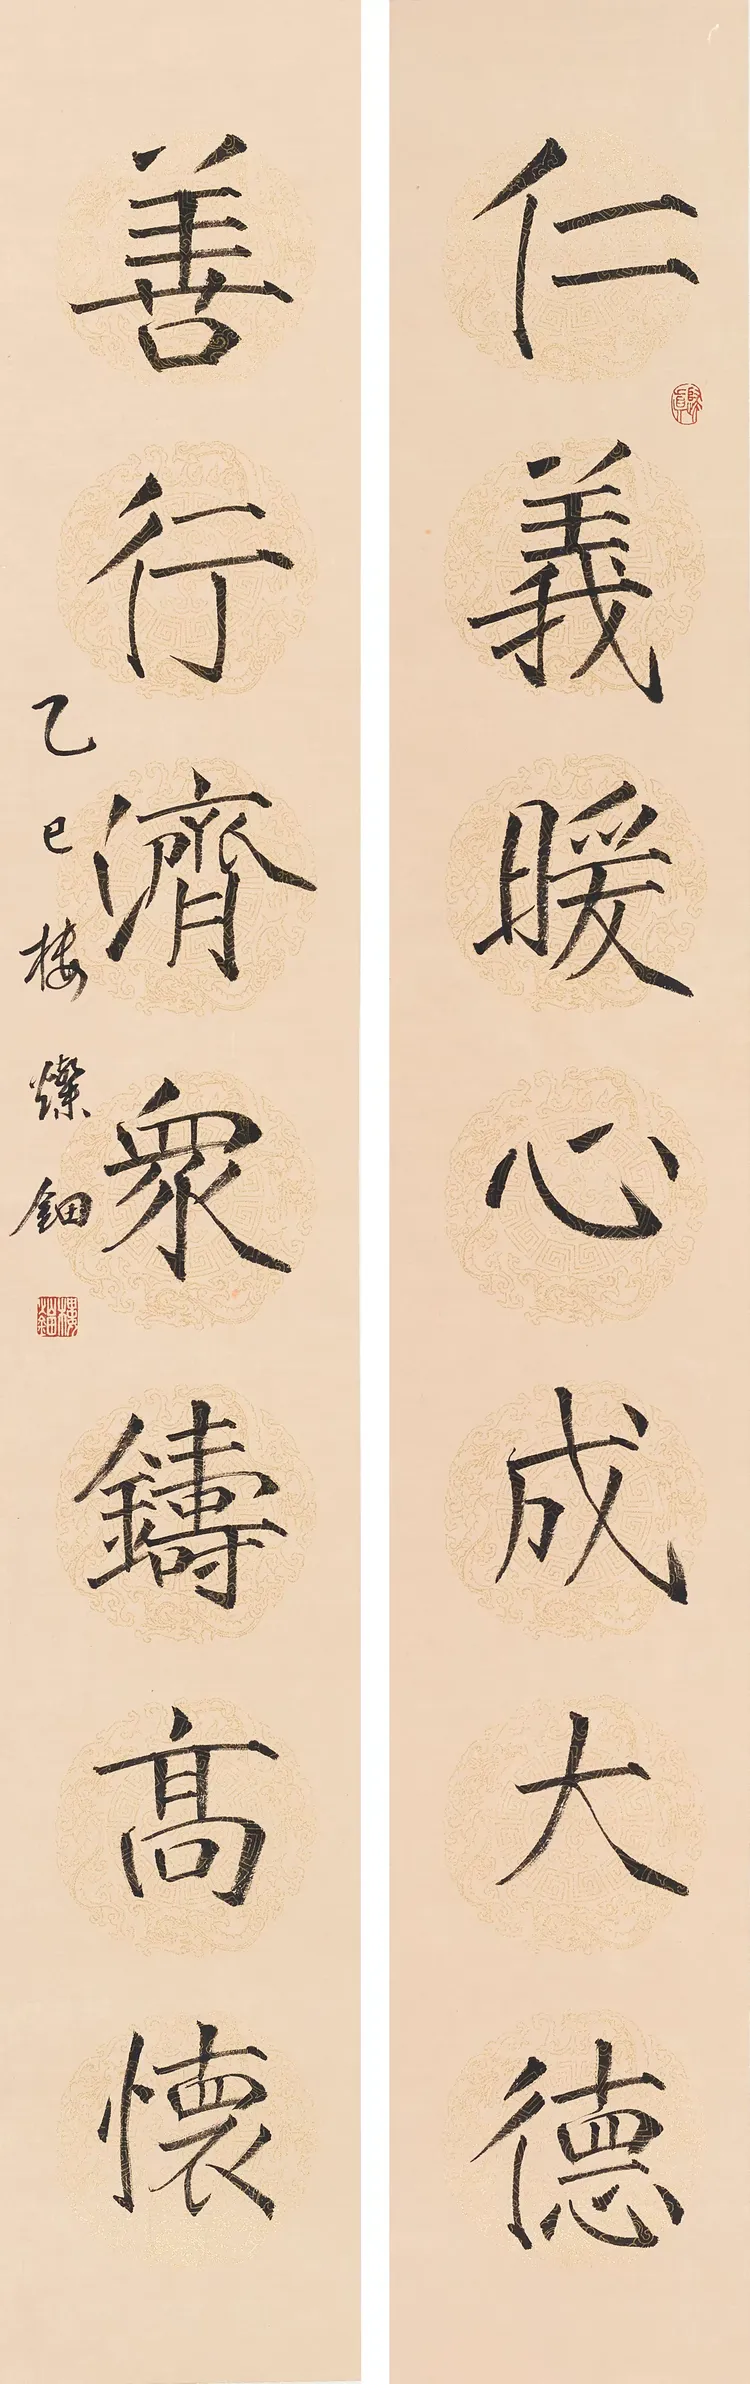 仁義暖心成大德
善行濟衆鑄高懷
乙巳樓燦鈿